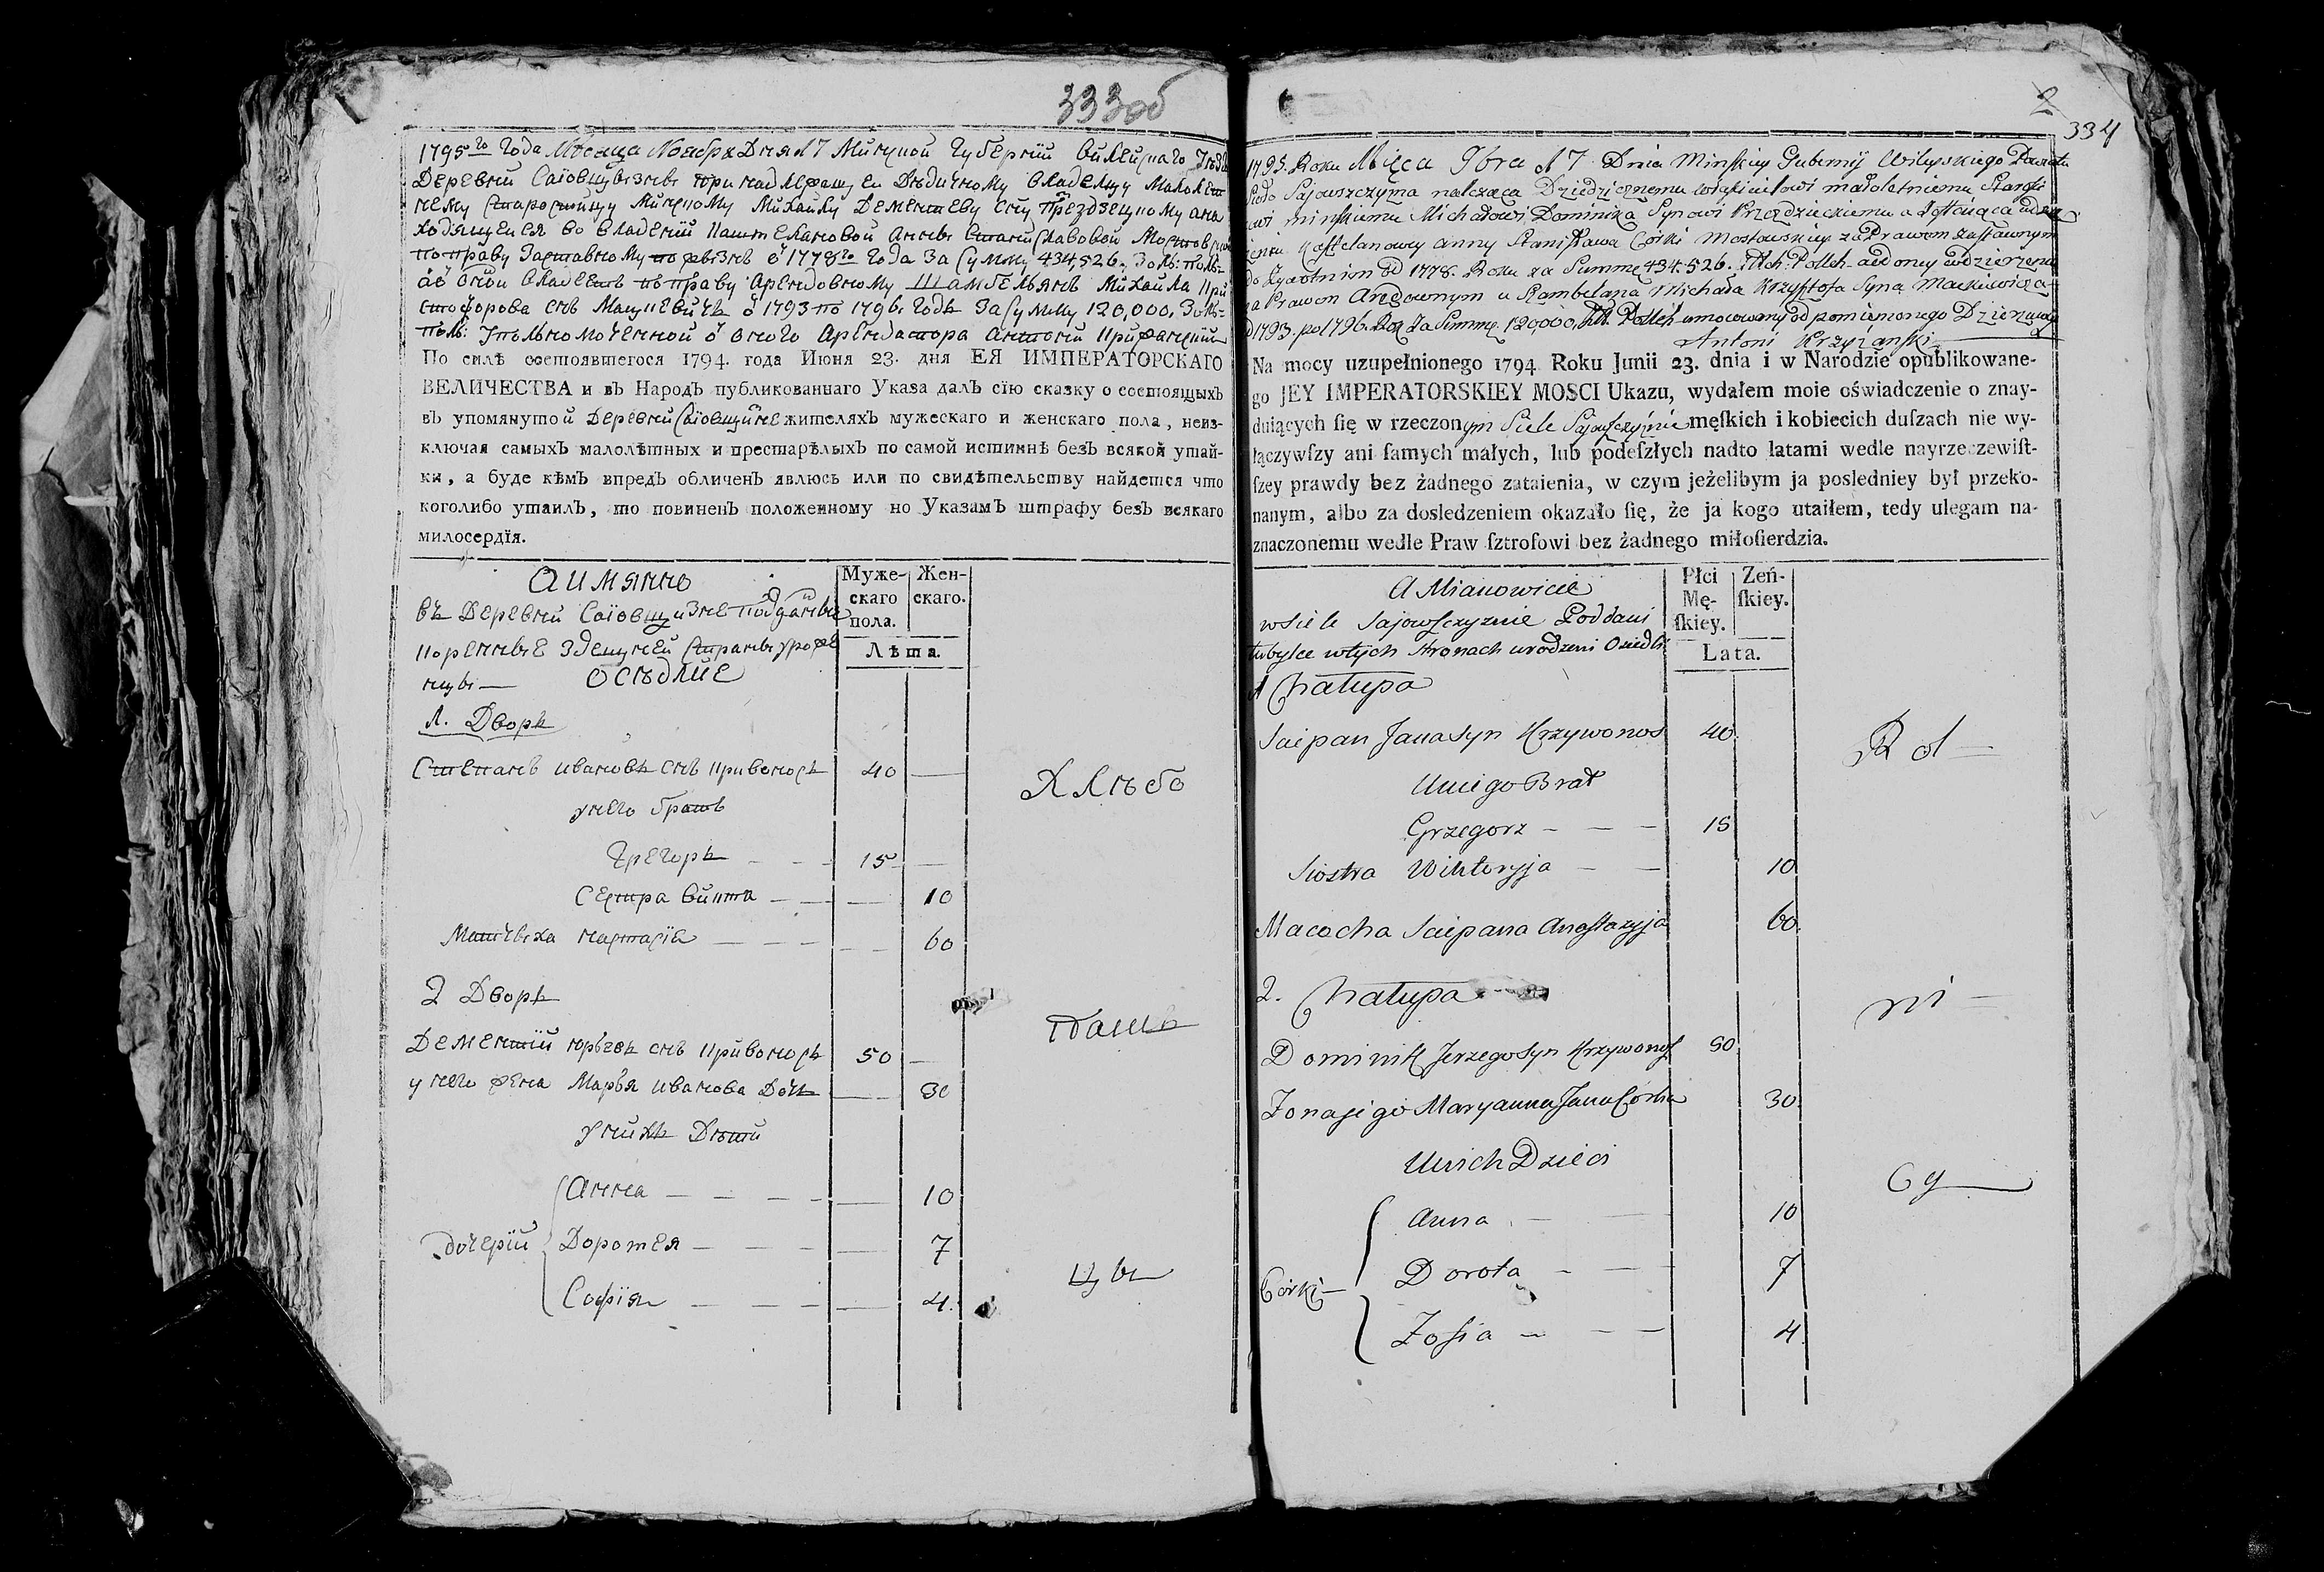 333об
1795го Года Месяца Ноября Дня 17 Минской Губернїи Вилейскаго Уезда
Деревни Саїовщизны принадлежащей Дѣдичному владельцу Малолет
нему Старостичу Минскому Михайлу Дементеву сну Прездзецкому а на
ходящейся во владенїи Каштеляновой Анны Станиславовой Мостовской
по праву Заставному по жизнь ѿ 1778го Года За Сумму 434,526. Золъ: поль:
по праву Арендовному Шамбельянъ Михайла Кри
стофорова снъ Мацкевичъ ѿ 1793 по 1796. Годъ За Сумму 120,000. Золъ:
поль: Уполномоченной ѿ оного Арендатора Антоній Крижанскій
По силѣ состоявшегося 1794. года Июня 23. дня ЕЯ ИМПЕРАТОРСКАГО
ВЕЛИЧЕСТВА и въ Народъ публикованнаго Указа далъ сїю сказку о состоящыхъ
въ упомянутой Деревни Саїовщизне жителяхъ мужескаго и женскаго пола, неиз-
ключая самыхъ малолѣтныхъ и престарѣлыхъ по самой истиннѣ безъ всякой утай-
ки, а буде кѣмъ впредь обличенъ явлюсь или по свидѣтельству найдется что
коголибо утаилъ, то повиненъ положенному по Указамъ штрафу безъ всякаго
милосердїя.
А имянно
въ Деревни Саїовщизне подданые
коренные здешней страны уроже
нцы — оседлие
Муже-
скаго
пола.
Жен-
скаго.
Лѣта.
1. Дворъ
Степанъ Ивановъ снъ Кривоносъ 40 —
у него братъ
Грегоръ — — 15 —
Сестра Викта — — — 10
Мачеха Настасїя — — — — 60
2 Дворъ
Дементїй Юрьевъ снъ Кривоносъ 50 —
у него жена Марья Иванова Дочь — 30
у нихъ Дети
Анна — — — — 10
дочерїи Доротея — — — — 7
Софїя — — — — 4.
К Лѣбо
ташъ
цы
2
334
1795. Roku Mięca 9bra 17 Dnia Minskiey Gubernij Wileyskiego Powiatu
Sioło Sajowszczyzna należąca Dziedzicznemu właścicielowi małoletniemu Starości
cowi minskiemu Michałowi Dominika Synowi Przeździeckiemu a
Kasztelanowey Anny Stanisława Córki Mostowskiey za Prawem zastawnym
od 1778. Roku za Summę 434.526. Złch: Polch
za Prawem Arędownym u Szambelana Michała Krzysztofa Syna Mackiewicza
od 1793 po 1796. Rok Za Summę 120000. Zł. Polch umocowany od pomienionego Dzierzawcy
Antoni Krzyżanski
Na mocy uzupełnionego 1794 Roku Junii 23. dnia i w Narodzie opublikowane-
go JEY IMPERATORSKIEY MOSCI Ukazu, wydałem moie oświadczenie o znay-
duiących ſię w rzeczonym Siele Sajowszczyznie męſkich i kobiecich duſzach nie wy-
łączywſzy ani ſamych małych, lub podeſzłych nadto latami wedle nayrzeczewiſt-
ſzey prawdy bez żadnego zataienia, w czym jeżelibym ja posledniey był przeko-
nanym, albo za dosledzeniem okazało ſię, że ja kogo utaiłem, tedy ulegam na-
znaczonemu wedle Praw ſztrofowi bez żadnego miłoſierdzia.
A Mianowicie
w Siele Sajowszczyznie Poddani
tutbylce w tych stronach urodzeni Osiedli
Płci
Mę-
ſkiey.
Zeń-
ſkiey.
Lata.
1 Chałupa
Sciepan Jana Syn Krzywonos 40.
U niego Brat
Grzegorz — — — 15
Siostra Wiktoryja — — 10
Macocha Sciepana Anastazyja 60.
2. Chałupa
Dominik Jerzego Syn Krzywonos 50.
Zona jego Maryanna Jana Córka 30.
U nich Dzieci
Anna — — 10
Córki — Dorota — — 7
Zosia — — — 4
Rol —
ni —
cy —